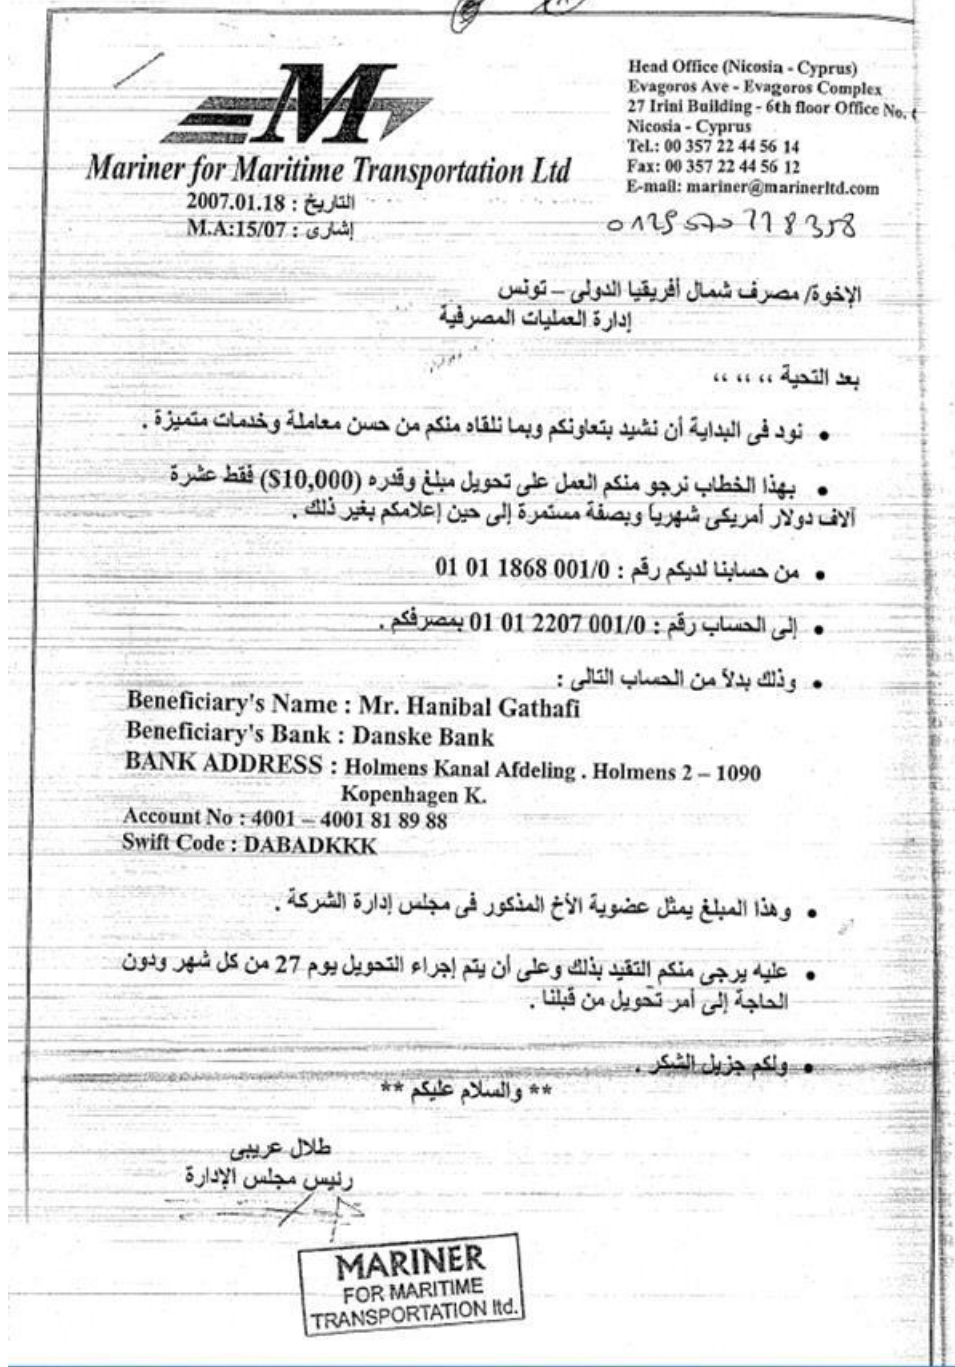 Head Office (Nicosia - Cyprus)
Evagoras Ave - Evagoros Complex
27 Irini Building - 6th floor Office No.
Nicosia - Cyprus
Tel.: 00 357 22 44 56 14
Fax: 00 357 22 44 56 12
E-mail: mariner@marinerltd.com
M
Mariner for Maritime Transportation Ltd
التاريخ : 2007.01.18
إشارى : M.A:15/07
الإخوة/ مصرف شمال أفريقيا الدولى – تونس
إدارة العمليات المصرفية
بعد التحية ،، ،، ،،
• نود فى البداية أن نشيد بتعاونكم وبما نلقاه منكم من حسن معاملة وخدمات متميزة .
• بهذا الخطاب نرجو منكم العمل على تحويل مبلغ وقدره ($10,000) فقط عشرة
آلاف دولار أمريكى شهرياً وبصفة مستمرة إلى حين إعلامكم بغير ذلك .
• من حسابنا لديكم رقم : 01 01 1868 001/0
• إلى الحساب رقم : 01 01 2207 001/0 بمصرفكم .
• وذلك بدلاً من الحساب التالى :
Beneficiary's Name : Mr. Hanibal Gathafi
Beneficiary's Bank : Danske Bank
BANK ADDRESS : Holmens Kanal Afdeling . Holmens 2 – 1090
Kopenhagen K.
Account No : 4001 – 4001 81 89 88
Swift Code : DABADKKK
• وهذا المبلغ يمثل عضوية الأخ المذكور فى مجلس إدارة الشركة .
• عليه يرجى منكم التقيد بذلك وعلى أن يتم إجراء التحويل يوم 27 من كل شهر ودون
الحاجة إلى أمر تحويل من قبلنا .
• ولكم جزيل الشكر .
** والسلام عليكم **
طلال عريبى
رئيس مجلس الإدارة
MARINER
FOR MARITIME
TRANSPORTATION ltd.